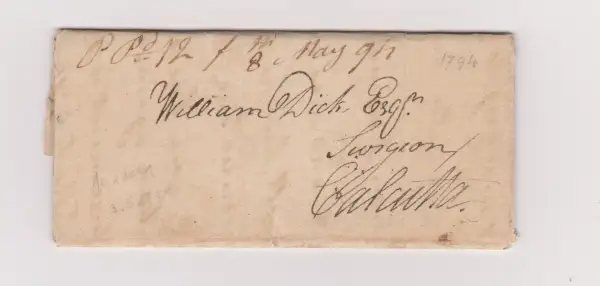 P Pd 12 / 8 May 94
1794
William Dick Esqr.
Surgeon
Calcutta.